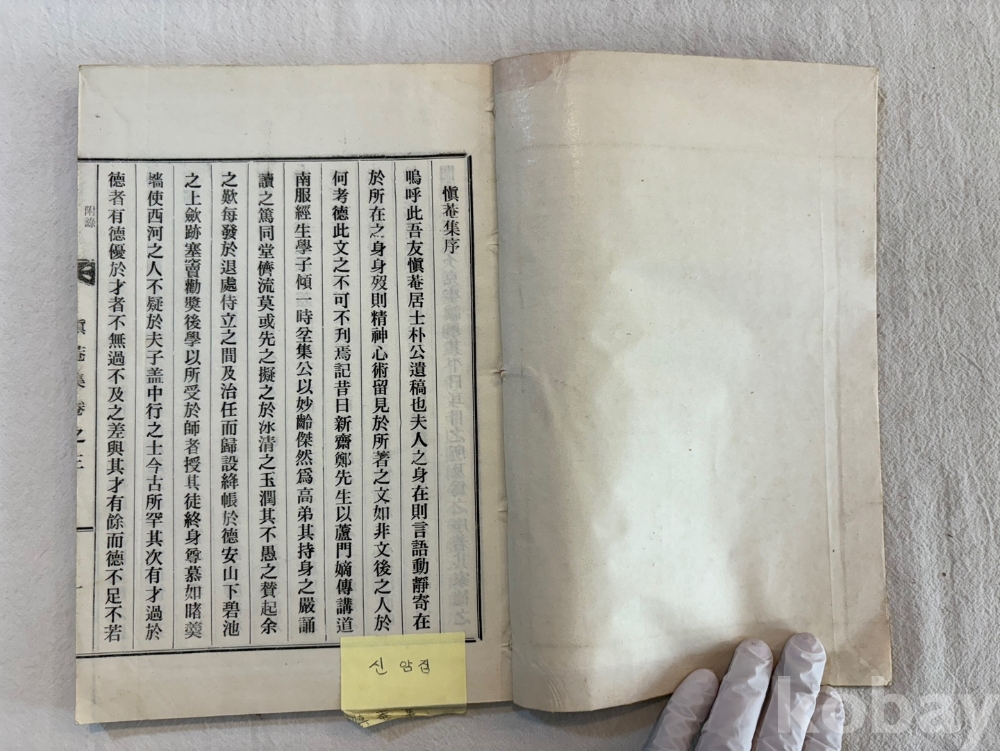 愼菴集序
嗚呼此吾友愼菴居士朴公遺稿也夫人之身在則言語動靜寄在
於所在之身身歿則精神心術留見於所著之文如非文後之人於
何考德此文之不可不刊焉記昔日新齋鄭先生以蘆門嫡傳講道
南服經生學子傾一時坌集公以妙齡傑然爲高弟其持身之嚴誦
讀之篤同堂儕流莫或先之擬之於氷淸之玉潤其不愚之賛起余
之歎每發於退處侍立之間及治任而歸設絳帳於德安山下碧池
之上歛跡塞竇勸奬後學以所受於師者授其徒終身尊慕如睹羮
墻使西河之人不疑於夫子盖中行之士今古所罕其次有才過於
德者有德優於才者不無過不及之差與其才有餘而德不足不若
附錄
愼菴集卷之三
一
신암집
kobay